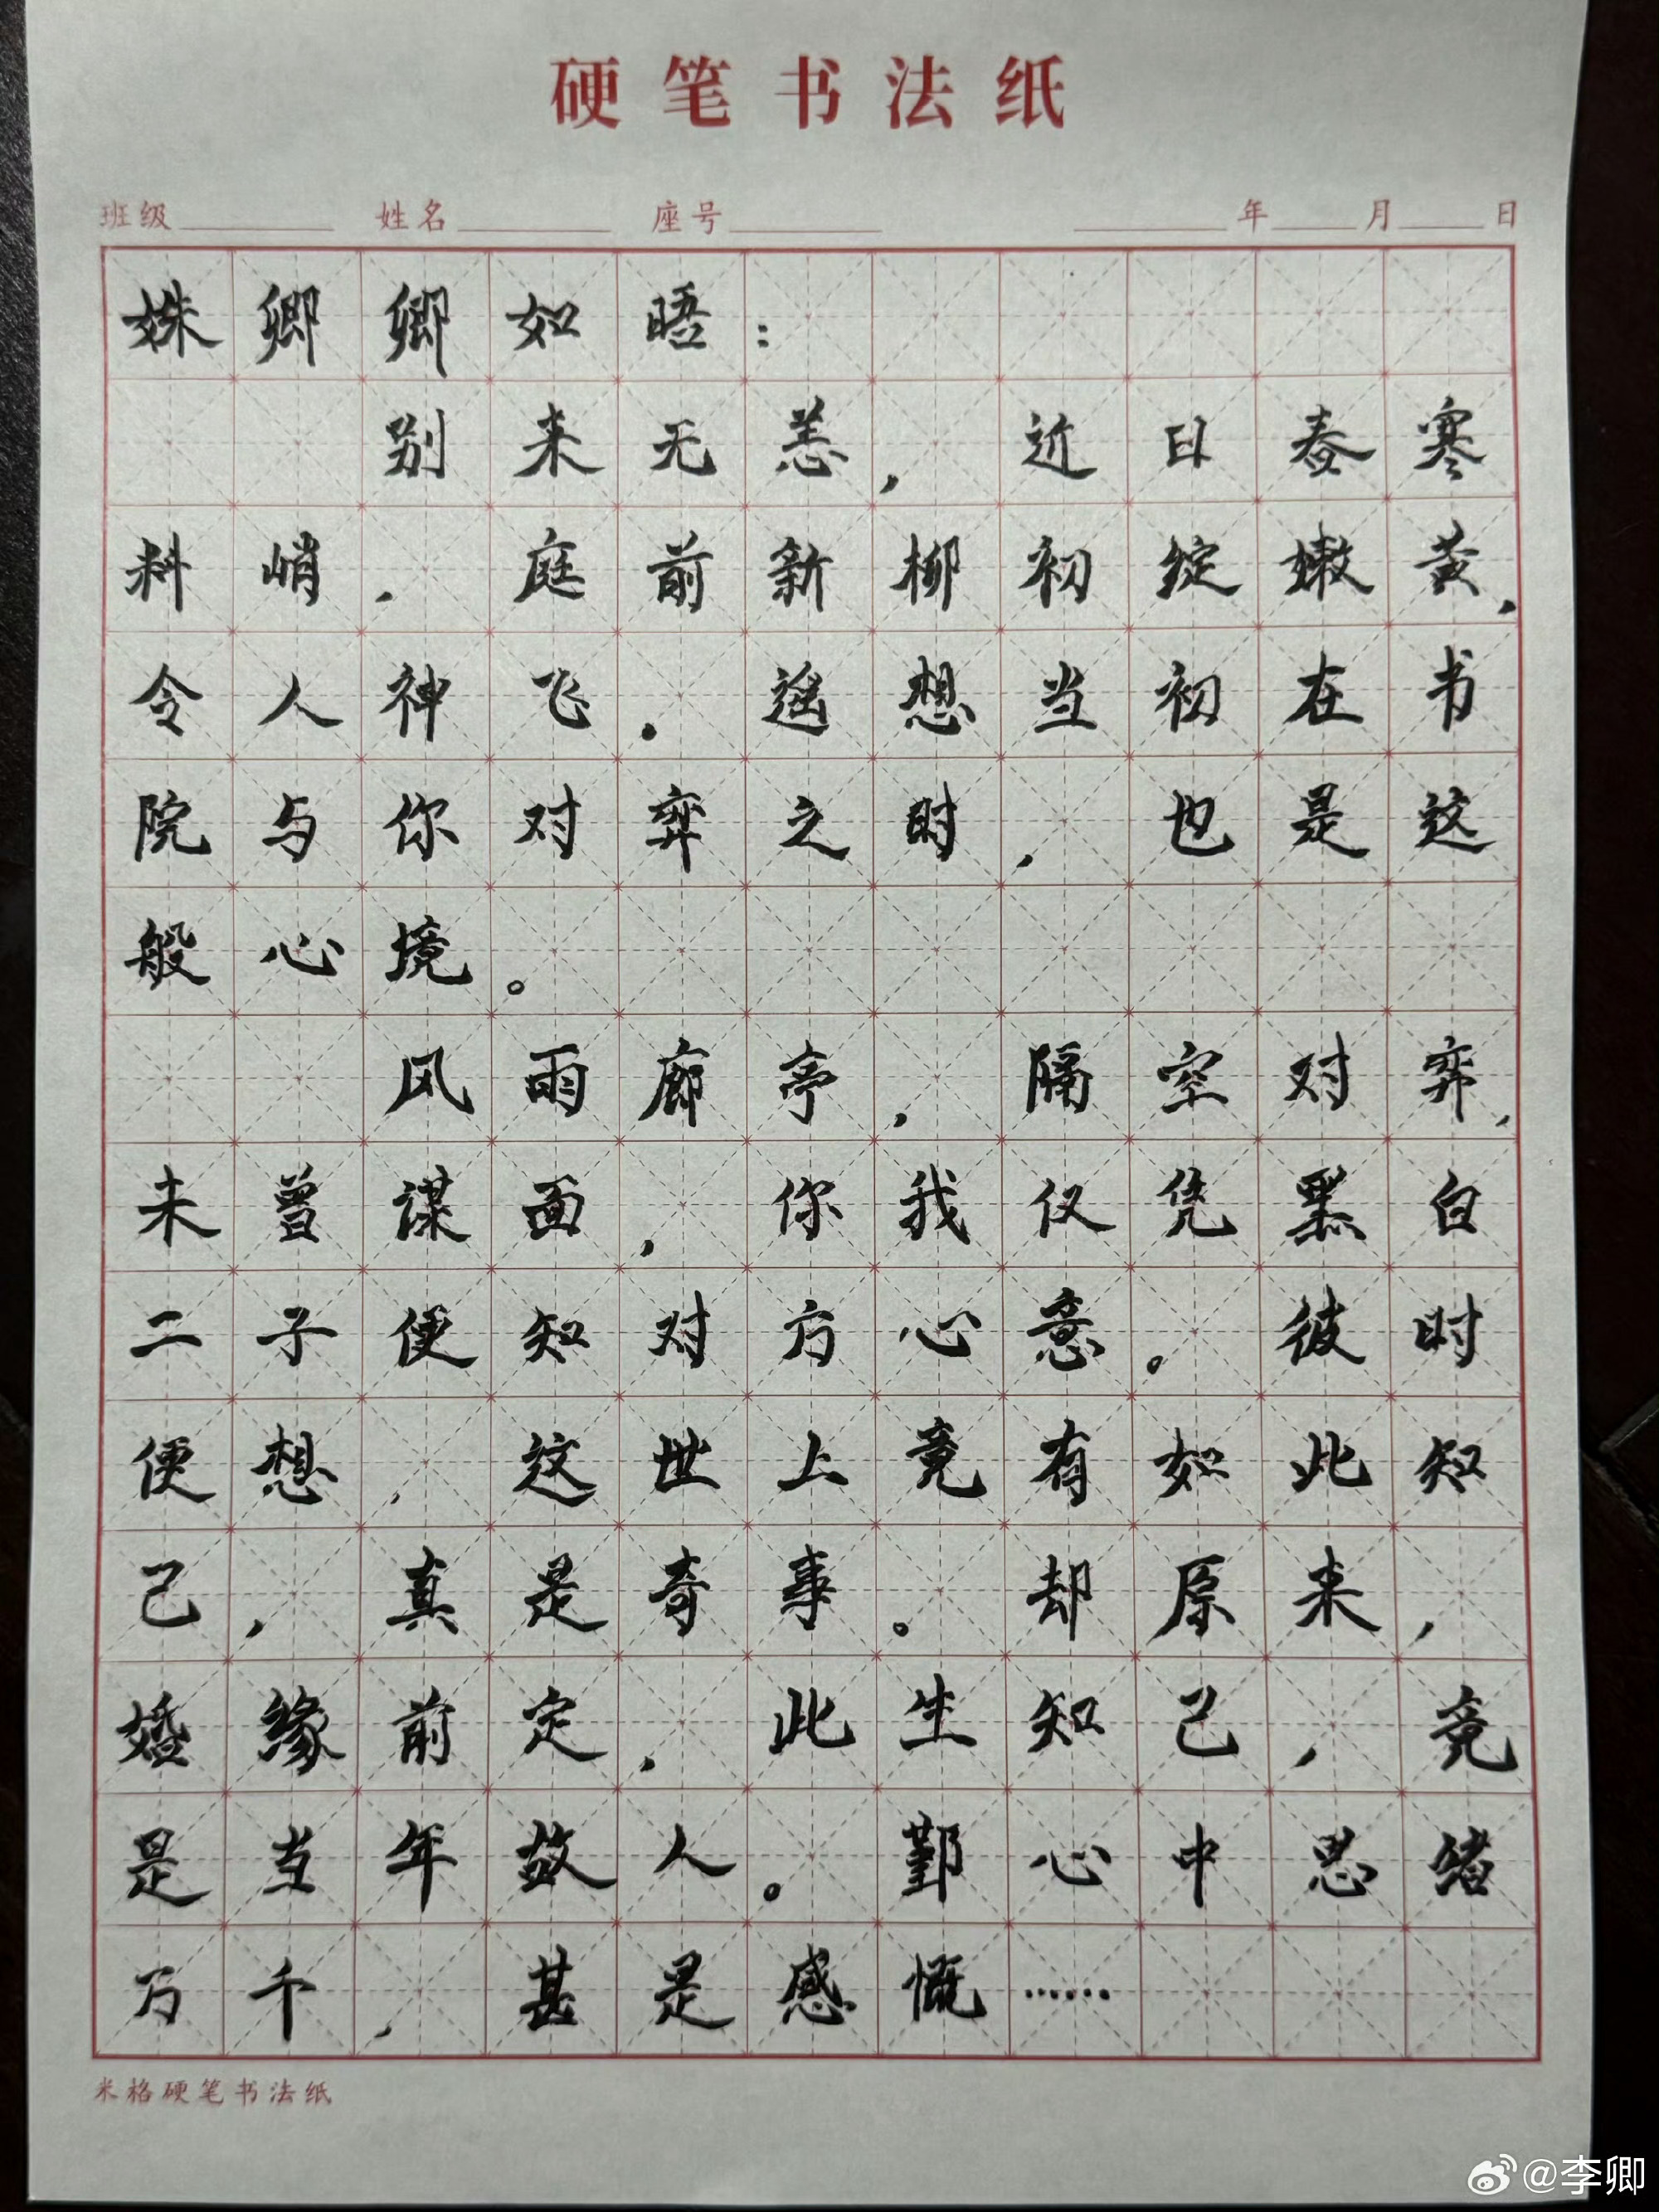 硬笔书法纸
班级 姓名 座号 年 月 日
姝卿卿如晤：
别来无恙，近日春寒
料峭，庭前新柳初绽嫩黄，
令人神飞．遥想当初在书
院与你对弈之时，也是这
般心境。
风雨廊亭，隔空对弈，
未曾谋面，你我仅凭黑白
二子便知对方心意。彼时
便想，这世上竟有如此知
己，真是奇事。却原来，
婚缘前定，此生知己，竟
是当年故人。鄞心中思绪
万千，甚是感慨……
米格硬笔书法纸
@李卿